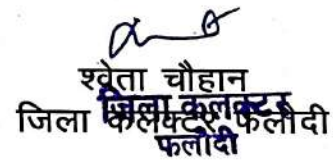 श्वेता चौहान
जिला कलक्टर फलोदी
जिला कलक्टर
फलोदी